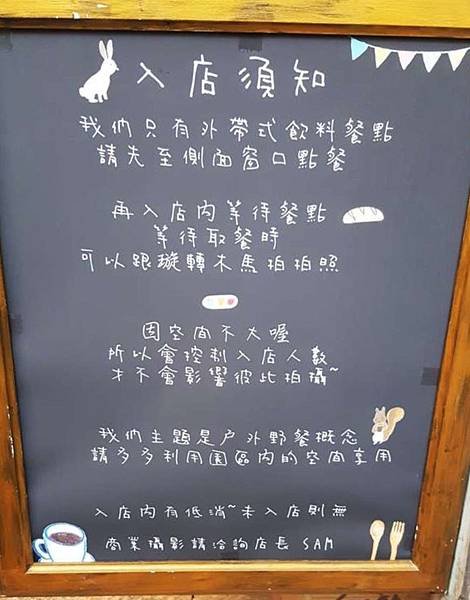 入店須知
我們只有外帶式飲料餐點
請先至側面窗口點餐
再入店內等待餐點
等待取餐時
可以跟旋轉木馬拍拍照
因空間不大喔
所以會控制入店人數
才不會影響彼此拍攝~
我們主題是戶外野餐概念
請多多利用園區內的空間享用
入店內有低消~未入店則無
商業攝影請洽詢店長 SAM